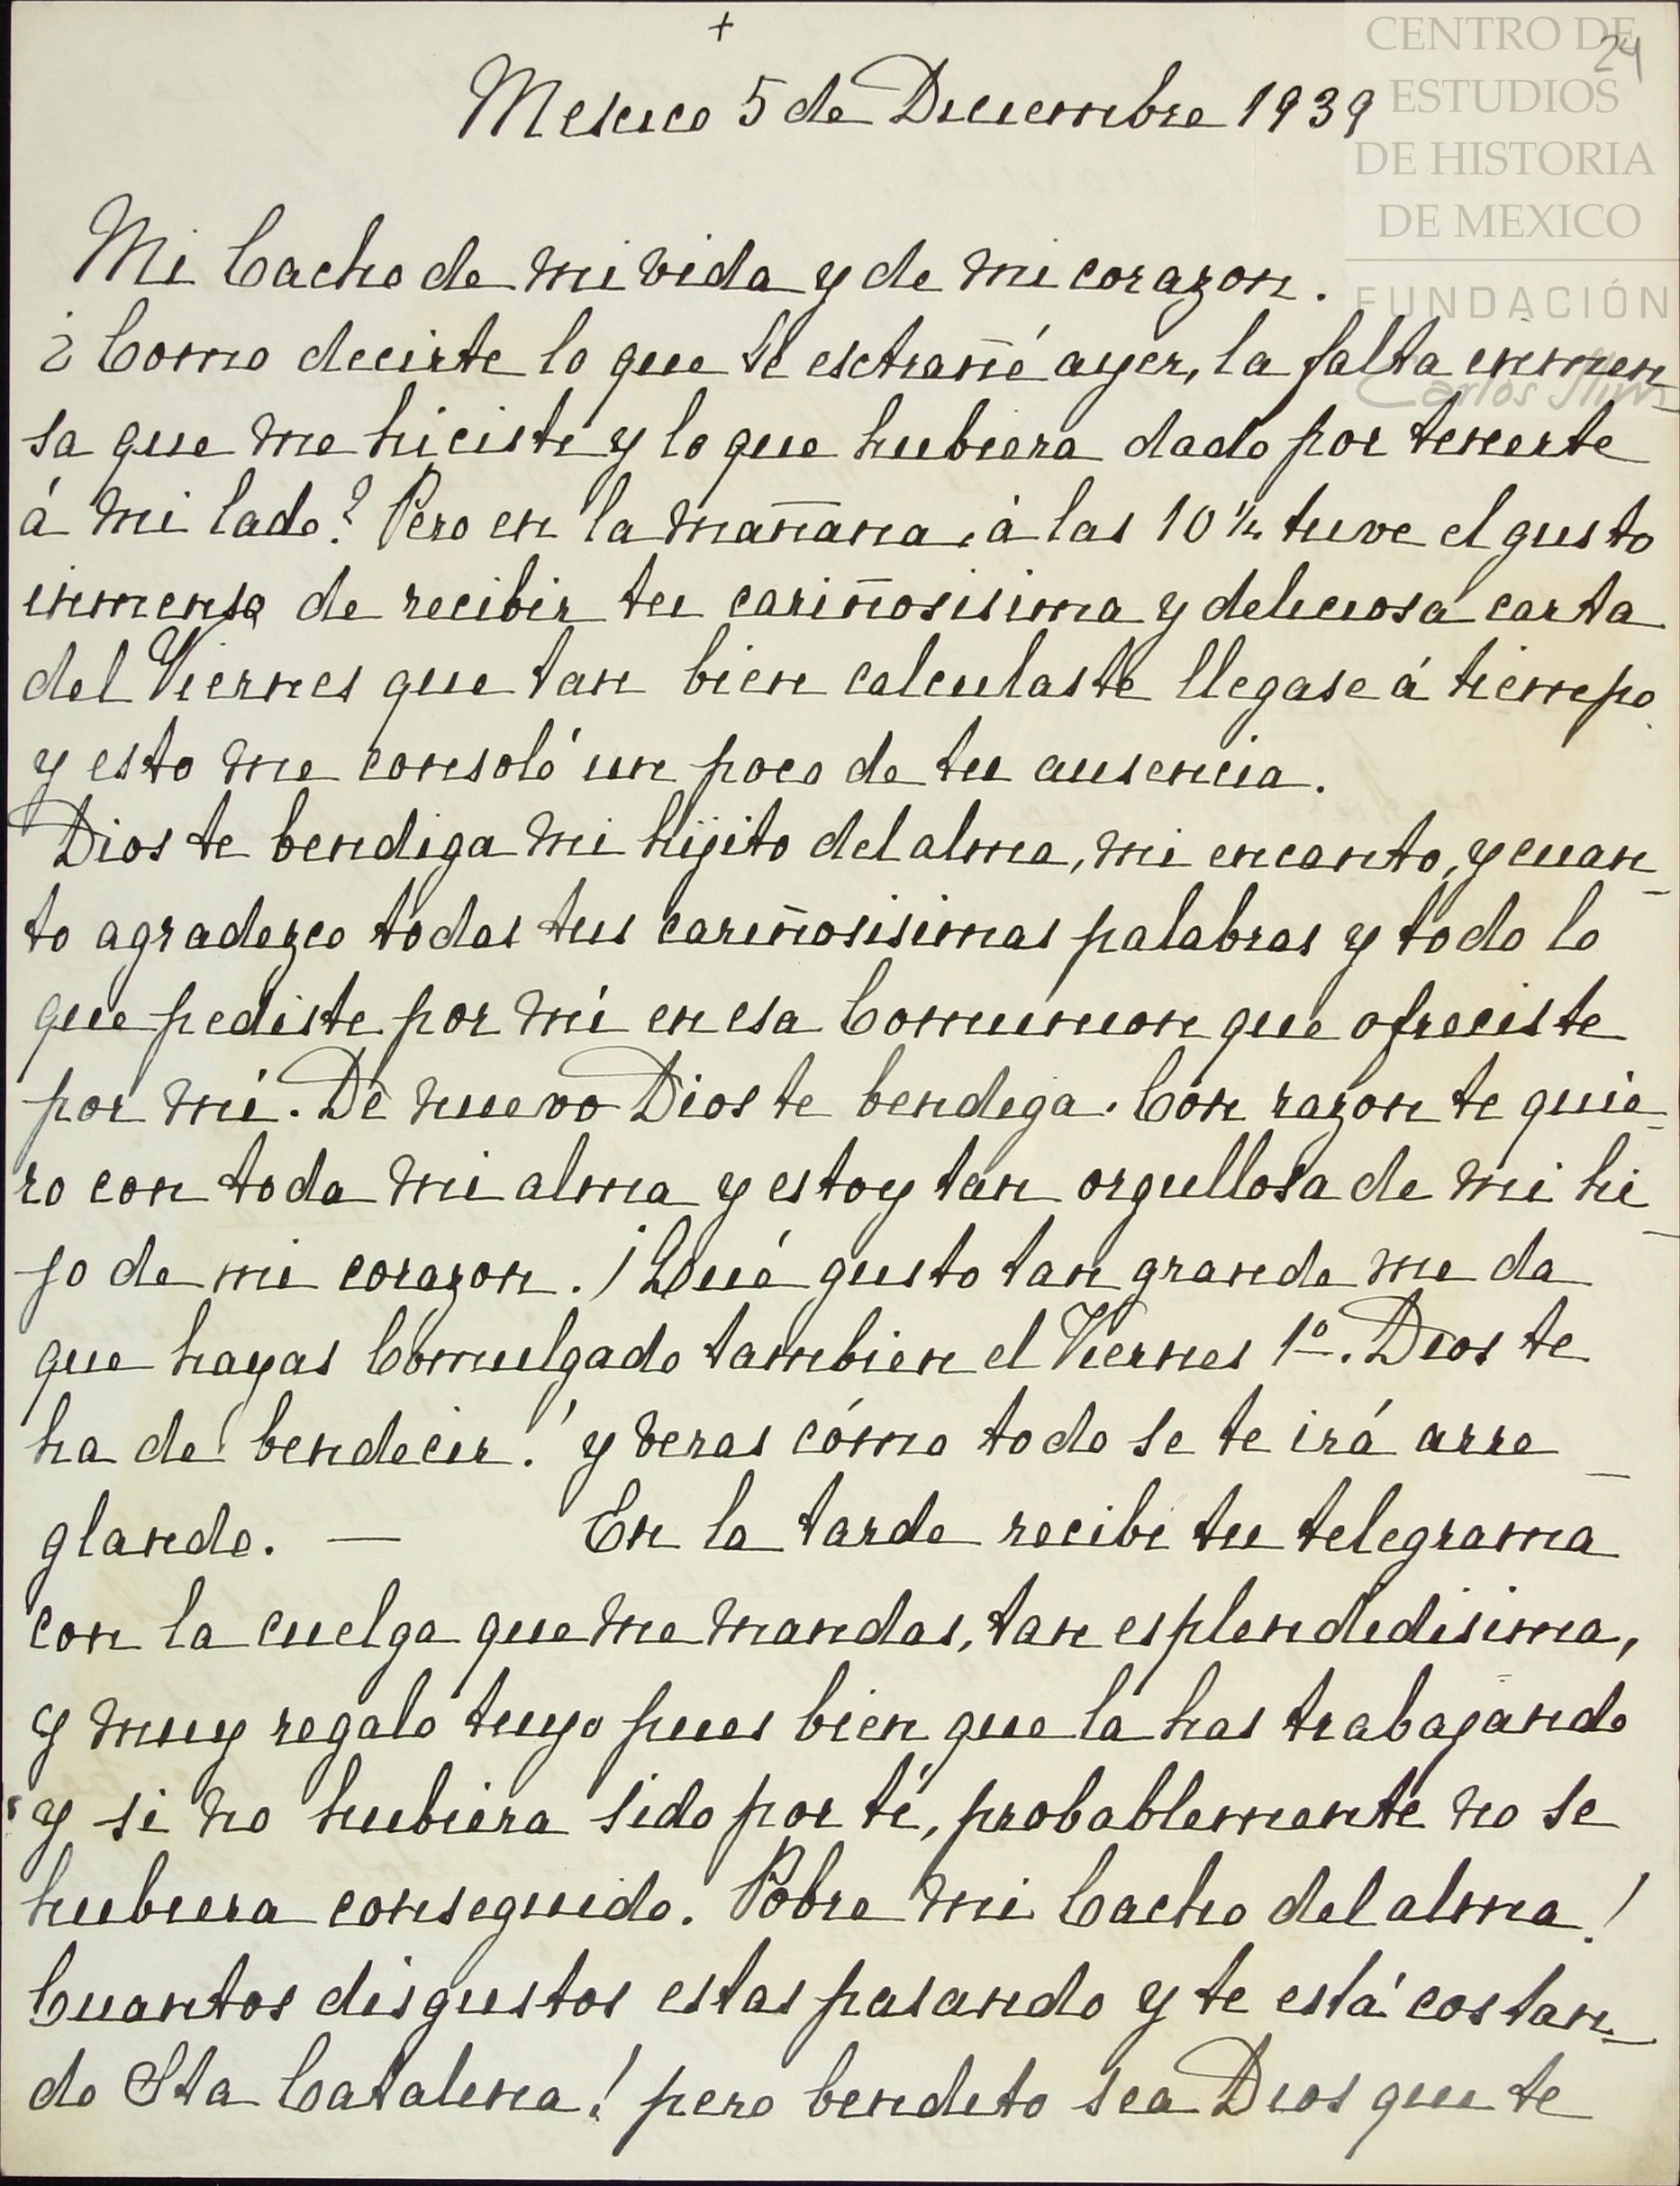 +
24
CENTRO DE
ESTUDIOS
DE HISTORIA
DE MEXICO
FUNDACIÓN
Carlos Slim
Mexico 5 de Diciembre 1939
Mi Cacho de mi vida y de mi corazon.
¿Como decirte lo que te estrañé ayer, la falta inmen_
sa que me hiciste y lo que hubiera dado por tenerte
á mi lado? Pero en la mañana, á las 10 ½ tuve el gusto
inmenso de recibir tu cariñosisima y deliciosa carta
del Viernes que tan bien calculaste llegase á tiempo
y esto me consoló un poco de tu ausencia.
Dios te bendiga mi hijito del alma, mi encanto, y cuan_
to agradezco todas tus cariñosisimas palabras y todo lo
que pediste por mí en esa Comunion que ofreciste
por mí. De nuevo Dios te bendiga. Con razon te quie_
ro con toda mi alma y estoy tan orgullosa de mi hi_
jo de mi corazon. ¡Qué gusto tan grande me da
que hayas Comulgado tambien el Viernes 1º. Dios te
ha de bendecir! y veras cómo todo se te irá arre_
glando. — En la tarde recibi tu telegrama
con la cuelga que me mandas, tan esplendidisima,
y muy regalo tuyo pues bien que la has trabajando
y si no hubiera sido por ti, probablemente no se
hubiera conseguido. Pobre mi Cacho del alma!
Cuantos disgustos estas pasando y te está costan_
do Sta Catalina! pero bendito sea Dios que te